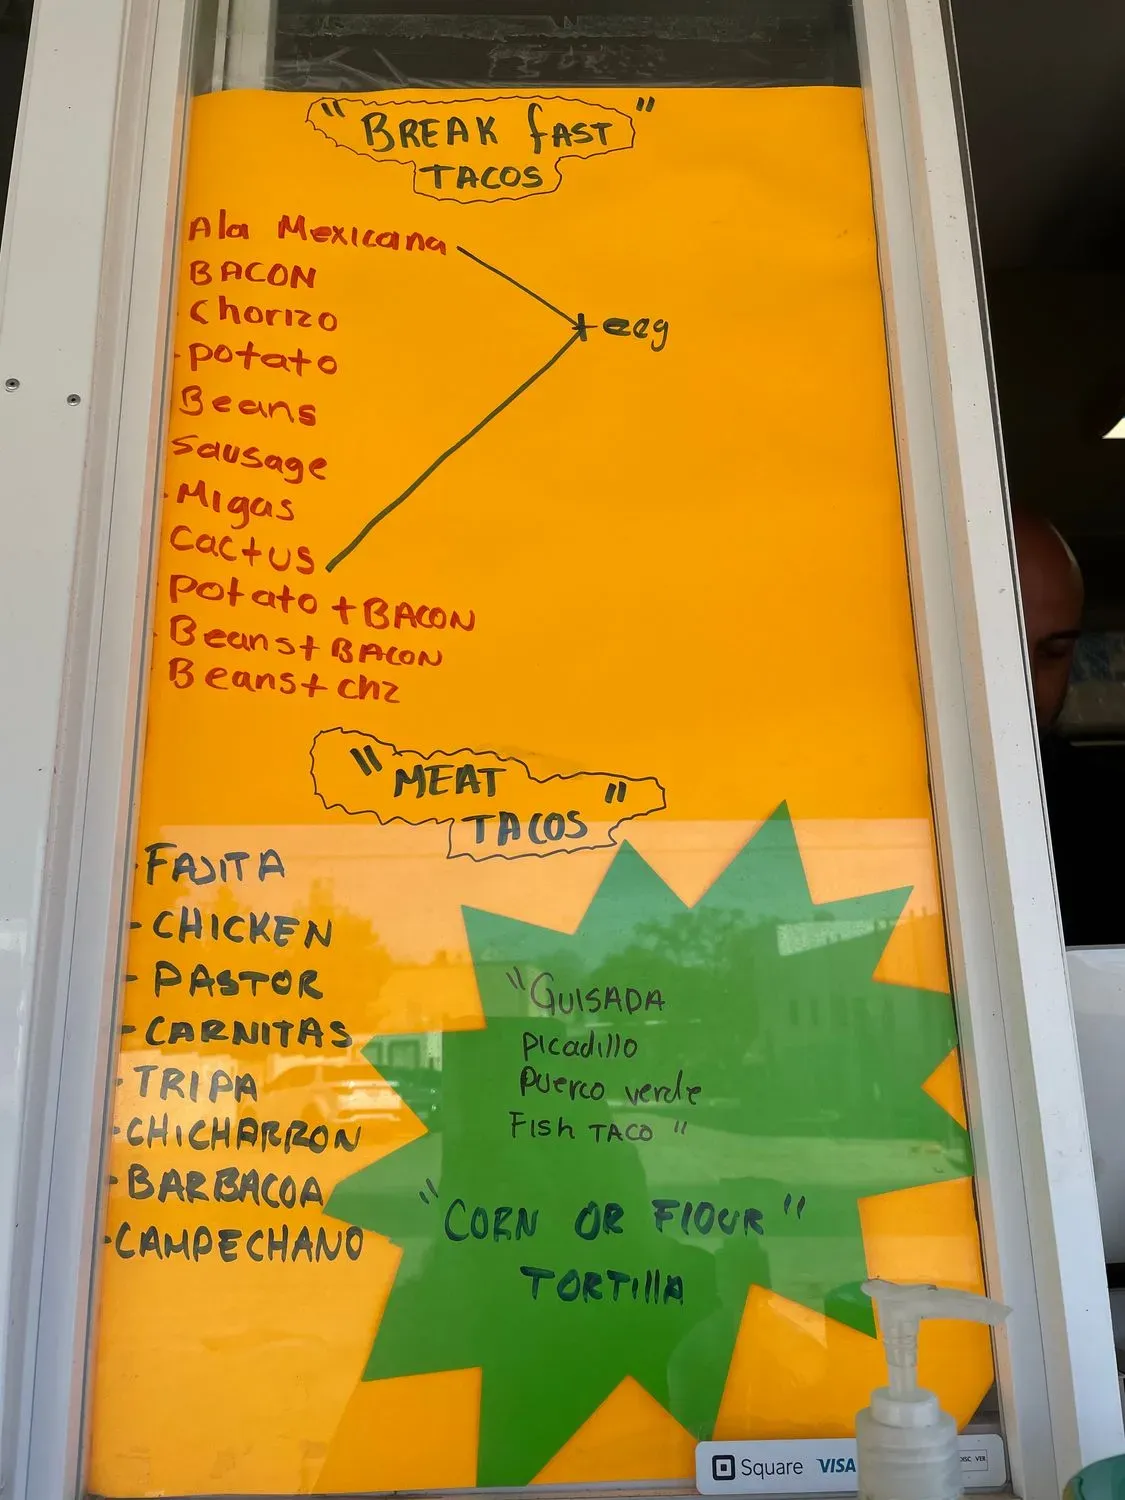 "BREAK fAST"
TACOS
Ala Mexicana
BACON
Chorizo
-potato
Beans
Sausage
-Migas
Cactus
+ eeg
potato + BACON
Beans + BACON
Beans + chz
"MEAT
TACOS"
-FAJITA
-CHICKEN
-PASTOR
-CARNITAS
-TRIPA
-CHICHARRON
-BARBACOA
-CAMPECHANO
"GUISADA
picadillo
puerco verde
Fish TACO"
"CORN OR FlOUR"
TORTIllA
Square VISA
DISC VER